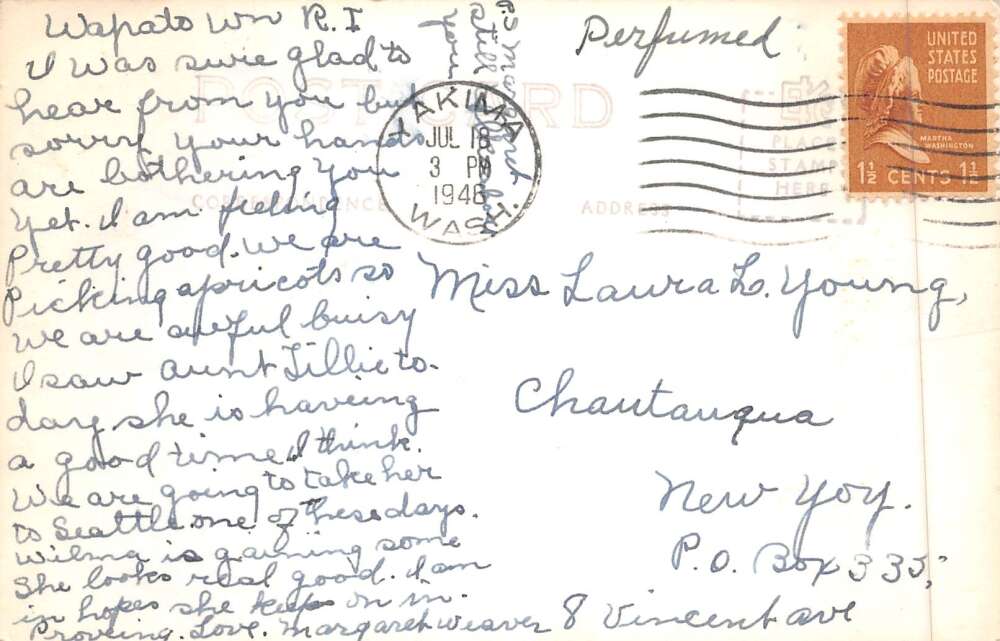 Wapato Wn R.I
I was sure glad to
hear from you but
sorry your hands
are bothering you
yet. I am feeling
Pretty good. We are
Picking apricots so
we are awful buisy
I saw Aunt Tillie to-
day she is haveing
a good time I think.
We are going to take her
to Seattle one of these days.
Wilma is gaining some
She looks real good. I am
in hopes she keeps on im-
proveing. Love. Margaret Weaver
P.S Margaret
still
your
Perfumed
POST CARD
CORRESPONDENCE
ADDRESS
PLACE
STAMP
HERE
YAKIMA
JUL 18
3 PM
1946
WASH.
UNITED
STATES
POSTAGE
MARTHA
WASHINGTON
1½ CENTS 1½
Miss Laura L. Young,
Chautauqua
New Yoy.
P.O. Box 335,
8 Vincent ave